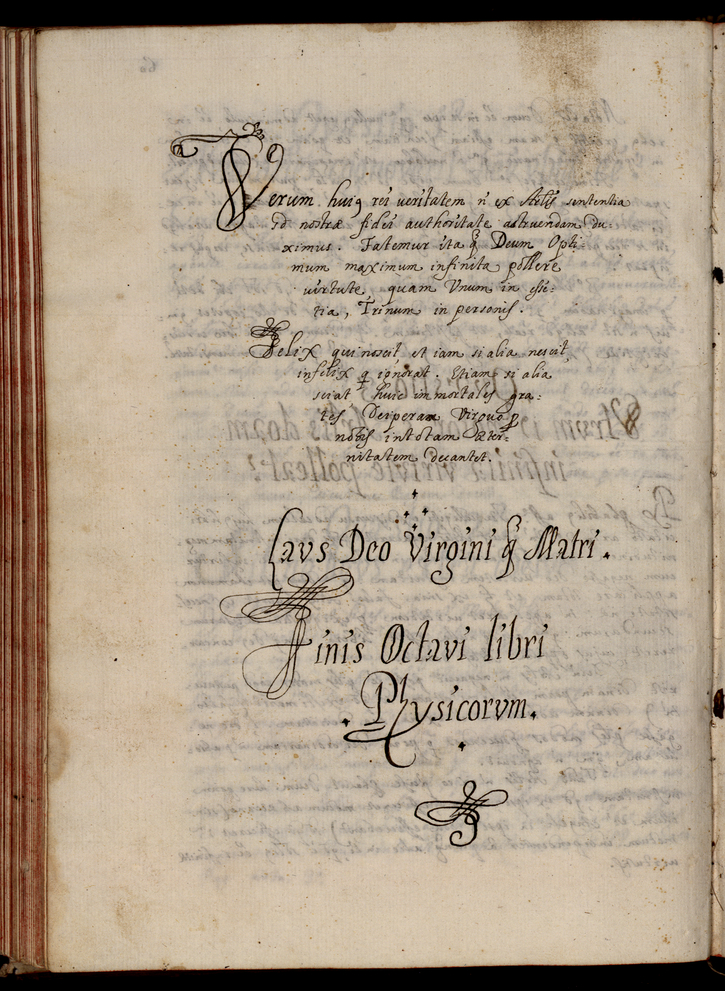 Verum huiꝗ rei veritatem ñ ex Aãlis sententia
id nostræ fidei authoritate astruendam du:
ximus. Fatemur ita q̃ Deum Opti:
mum maximum infinita pollere
virtute quam Vnum in essē:
tia, Trinum in personis.
Felix qui noscit et iam si alia nescit,
infelix q ignorat. Etiam si alia
sciat huic immortales gra:
tes Deiperam Virgo ꝑ
nobis in totam æter:
nitatem decantet.
Lavs Deo Virgini q̃ Matri.
Finis Octavi libri
Physicorvm.